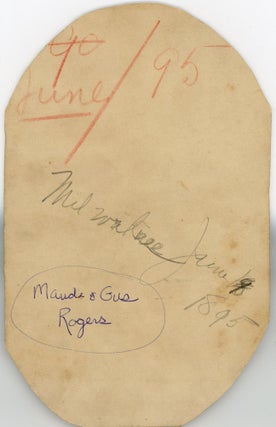 90
June / 95
Milwaukee June 18
1895
Maude & Gus
Rogers